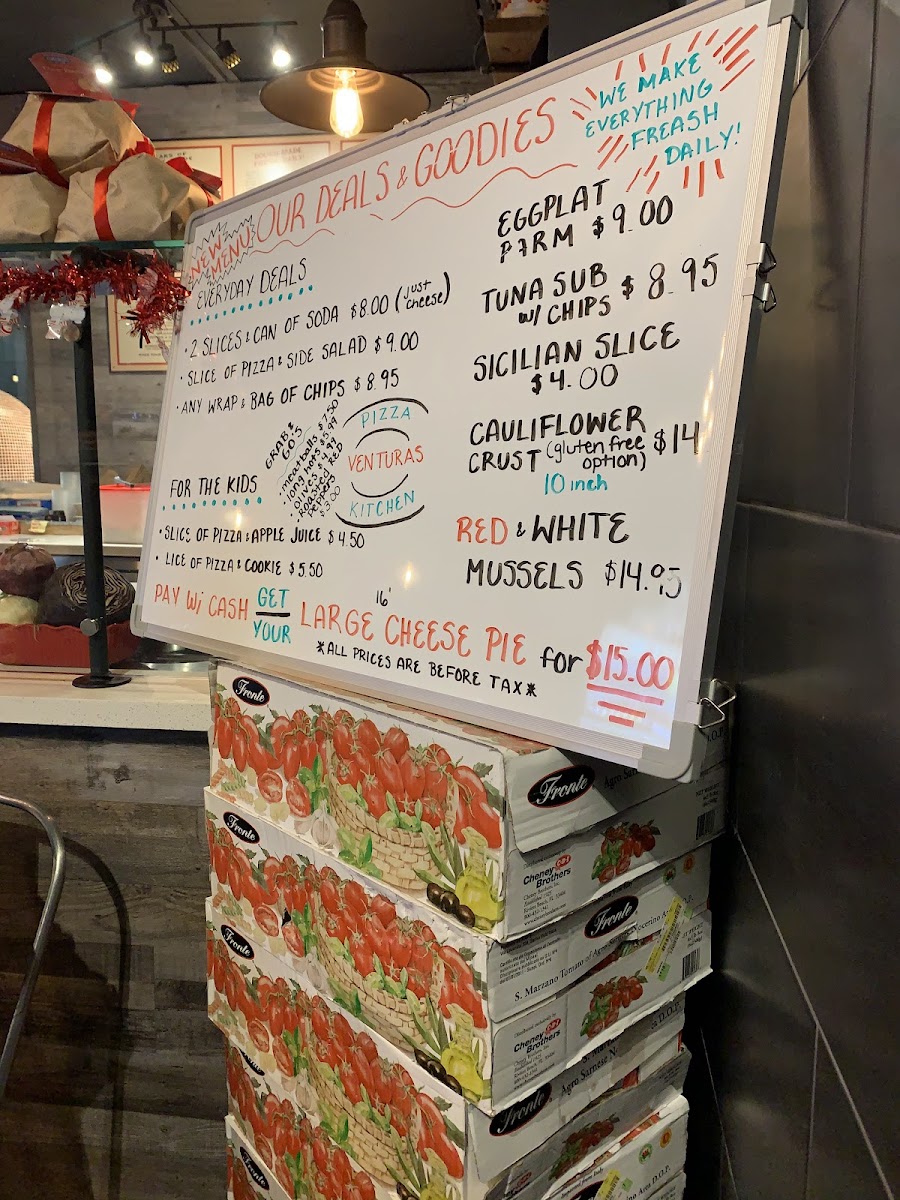 WE MAKE
EVERYTHING
FREASH
DAILY!
NEW
MENU
OUR DEALS & GOODIES
EVERYDAY DEALS
· 2 SLICES & CAN OF SODA $8.00 (just cheese)
· SLICE OF PIZZA & SIDE SALAD $9.00
· ANY WRAP & BAG OF CHIPS $8.95
GRAB &
GO'S
· meatballs $7.50
· long hots $5.99
· olives $4.99
· ROASTED RED
PEPPERS
$3.00
PIZZA
VENTURAS
KITCHEN
FOR THE KIDS
· SLICE OF PIZZA & APPLE JUICE $4.50
· LICE OF PIZZA & COOKIE $5.50
EGGPLAT
PARM $9.00
TUNA SUB
W/ CHIPS $8.95
SICILIAN SLICE
$4.00
CAULIFLOWER
CRUST (gluten free option) $14
10 inch
RED & WHITE
MUSSELS $14.95
PAY W/ CASH GET YOUR 16' LARGE CHEESE PIE for $15.00
*ALL PRICES ARE BEFORE TAX*
Fronte
Fronte
Cheney
Brothers
Fronte
Fronte
S. Marzano Tomato of Agro Sarnese Nocerino
Cheney
Brothers
Fronte
Fronte
Agro Sarnese N
D.O.P.
Area D.O.P.